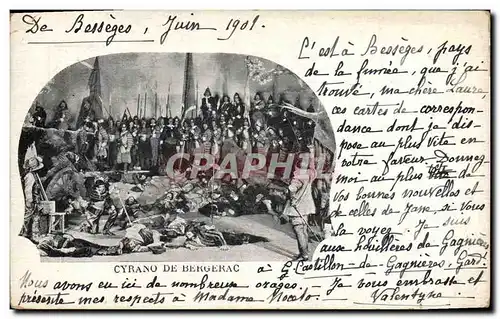 De Bessèges, Juin 1901.
L'est à Bessèges, pays
de la fumée, que j'ai
trouvé, ma chère Laure,
ces cartes de correspon-
dance dont je dis-
pose au plus vite en
votre faveur. Donnez
moi au plus vite de
vos bonnes nouvelles et
de celles de Jane, si vous
la voyez. Je suis
aux houillères de Gagnières
à G. Castillon-de-Gagnières-Gard.
CPARAMA
CYRANO DE BERGERAC
Nous avons eu ici de nombreux orages. - Je vous embrasse et
présente mes respects à Madame
Valentyne.